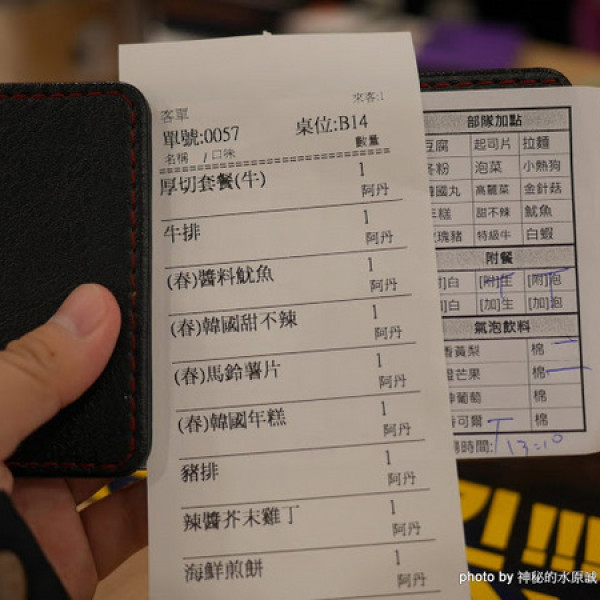 客單
來客:1
單號:0057
桌位:B14
名稱 / 口味
數量
厚切套餐(牛) 1
阿丹
牛排 1
阿丹
(春)醬料魷魚 1
阿丹
(春)韓國甜不辣 1
阿丹
(春)馬鈴薯片 1
阿丹
(春)韓國年糕 1
阿丹
豬排 1
阿丹
辣醬芥末雞丁 1
阿丹
海鮮煎餅 1
阿丹
部隊加點
豆腐 起司片 拉麵
冬粉 泡菜 小熱狗
國丸 高麗菜 金針菇
年糕 甜不辣 魷魚
瑰豬 特級牛 白蝦
附餐
]白 [附]生 [附]泡
]白 [加]生 [加]泡
氣泡飲料
香黃梨 棉
橙芒果 棉
葡萄 棉
可爾 棉
時間: 13:10
photo by 神秘的水原誠